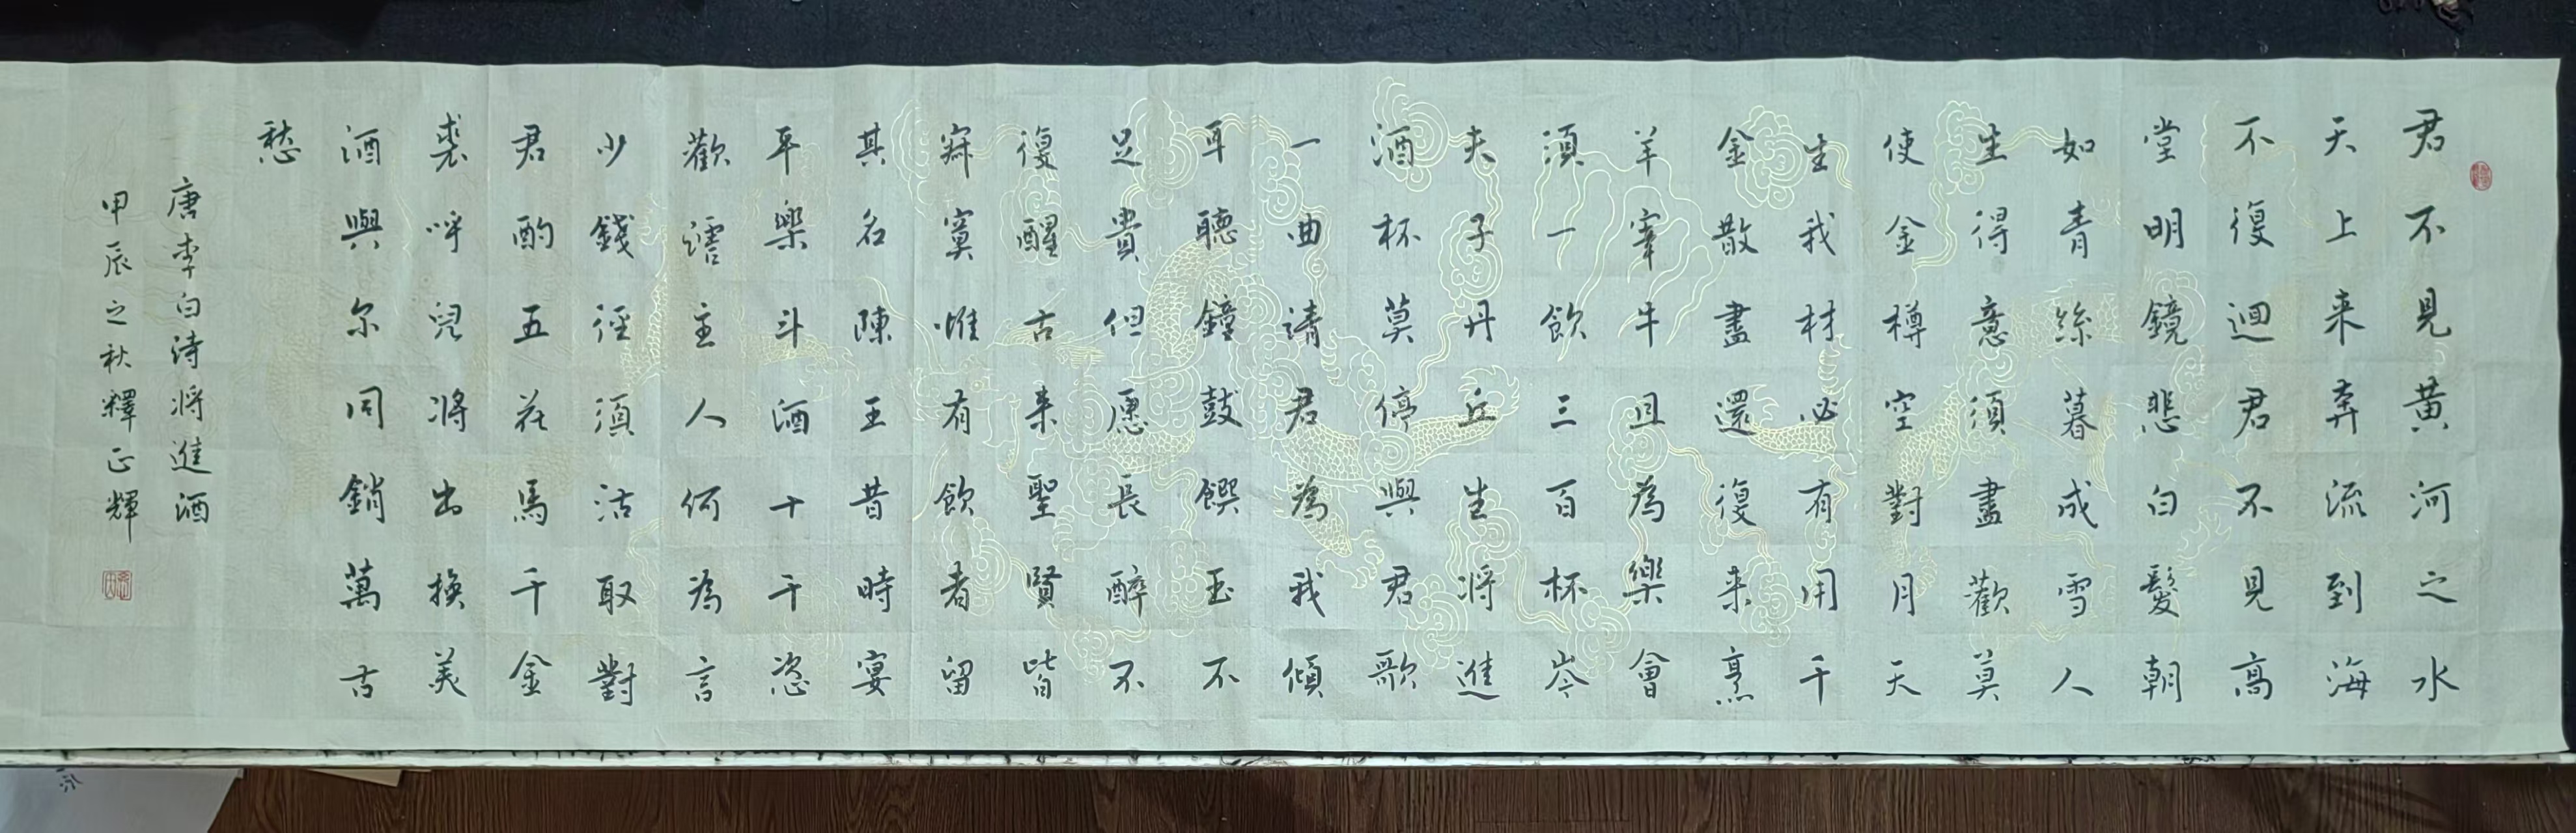 君不見黄河之水
天上来奔流到海
不復迴君不見高
堂明鏡悲白髮朝
如青絲暮成雪人
生得意須盡歡莫
使金樽空對月天
生我材必有用千
金散盡還復来烹
羊宰牛且為樂會
須一飲三百杯岑
夫子丹丘生将進
酒杯莫停與君歌
一曲請君為我傾
耳聽鐘鼓饌玉不
足貴但愿長醉不
復醒古来聖賢皆
寂寞惟有飲者留
其名陳王昔時宴
平樂斗酒十千恣
歡謔主人何為言
少錢徑須沽取對
君酌五花馬千金
裘呼兒将出換美
酒與尔同銷萬古
愁
唐李白诗将進酒
甲辰之秋釋正輝